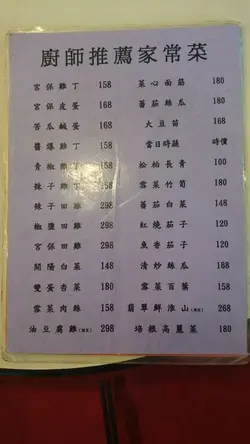 廚師推薦家常菜
宮保雞丁 158
宮保皮蛋 168
苦瓜鹹蛋 168
醬爆雞丁 158
青椒雞丁 158
辣子雞丁 158
辣子田雞 298
椒鹽田雞 298
宮保田雞 298
開陽白菜 148
雙蛋杏菜 180
雪菜肉絲 158
油豆腐雞 298
菜心面筋 180
蕃茄絲瓜 180
大豆苗 168
當日時蔬 時價
松柏長青 100
雪菜竹筍 180
蕃茄白菜 148
紅燒茄子 120
魚香茄子 120
清炒絲瓜 168
雪菜百葉 158
翡翠鮮淮山 268
培根高麗菜 180